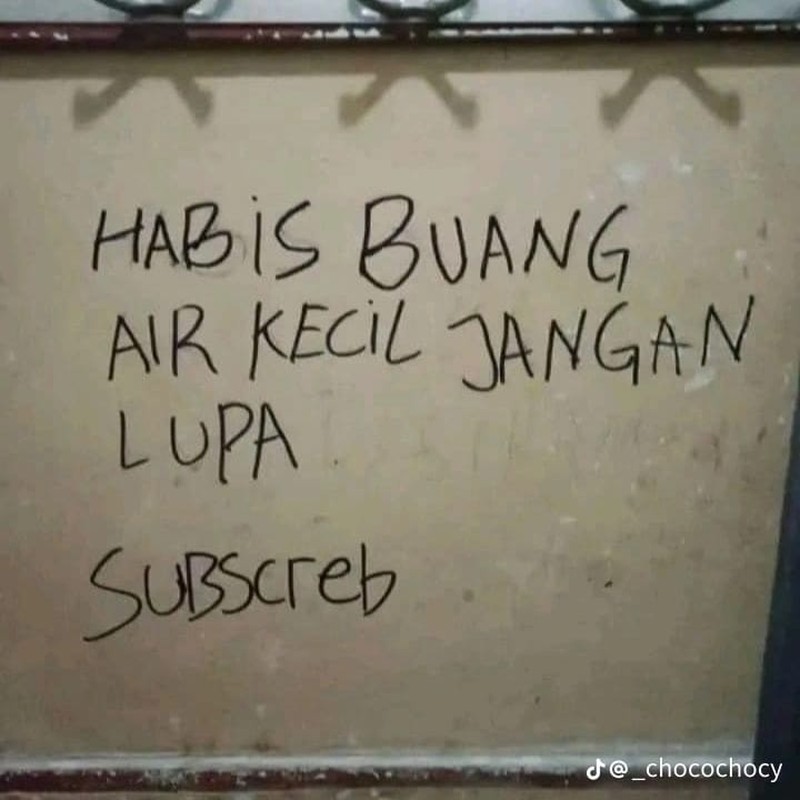 HABiS BUANG
AIR KECiL JANGAN
LUPA
SUBScreb
@_chocochocy